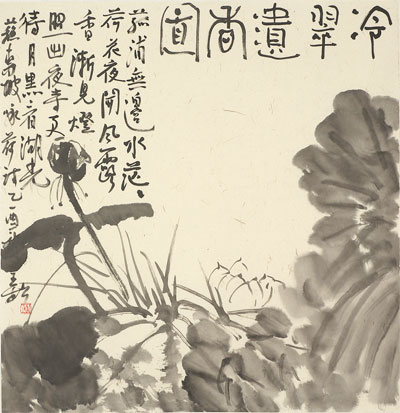 冷翠遺香圖
菰蒲無邊水茫々
荷花夜開風露
香漸見燈
明出遠寺更
待月黑看湖光
蘇東坡詠荷詩乙酉